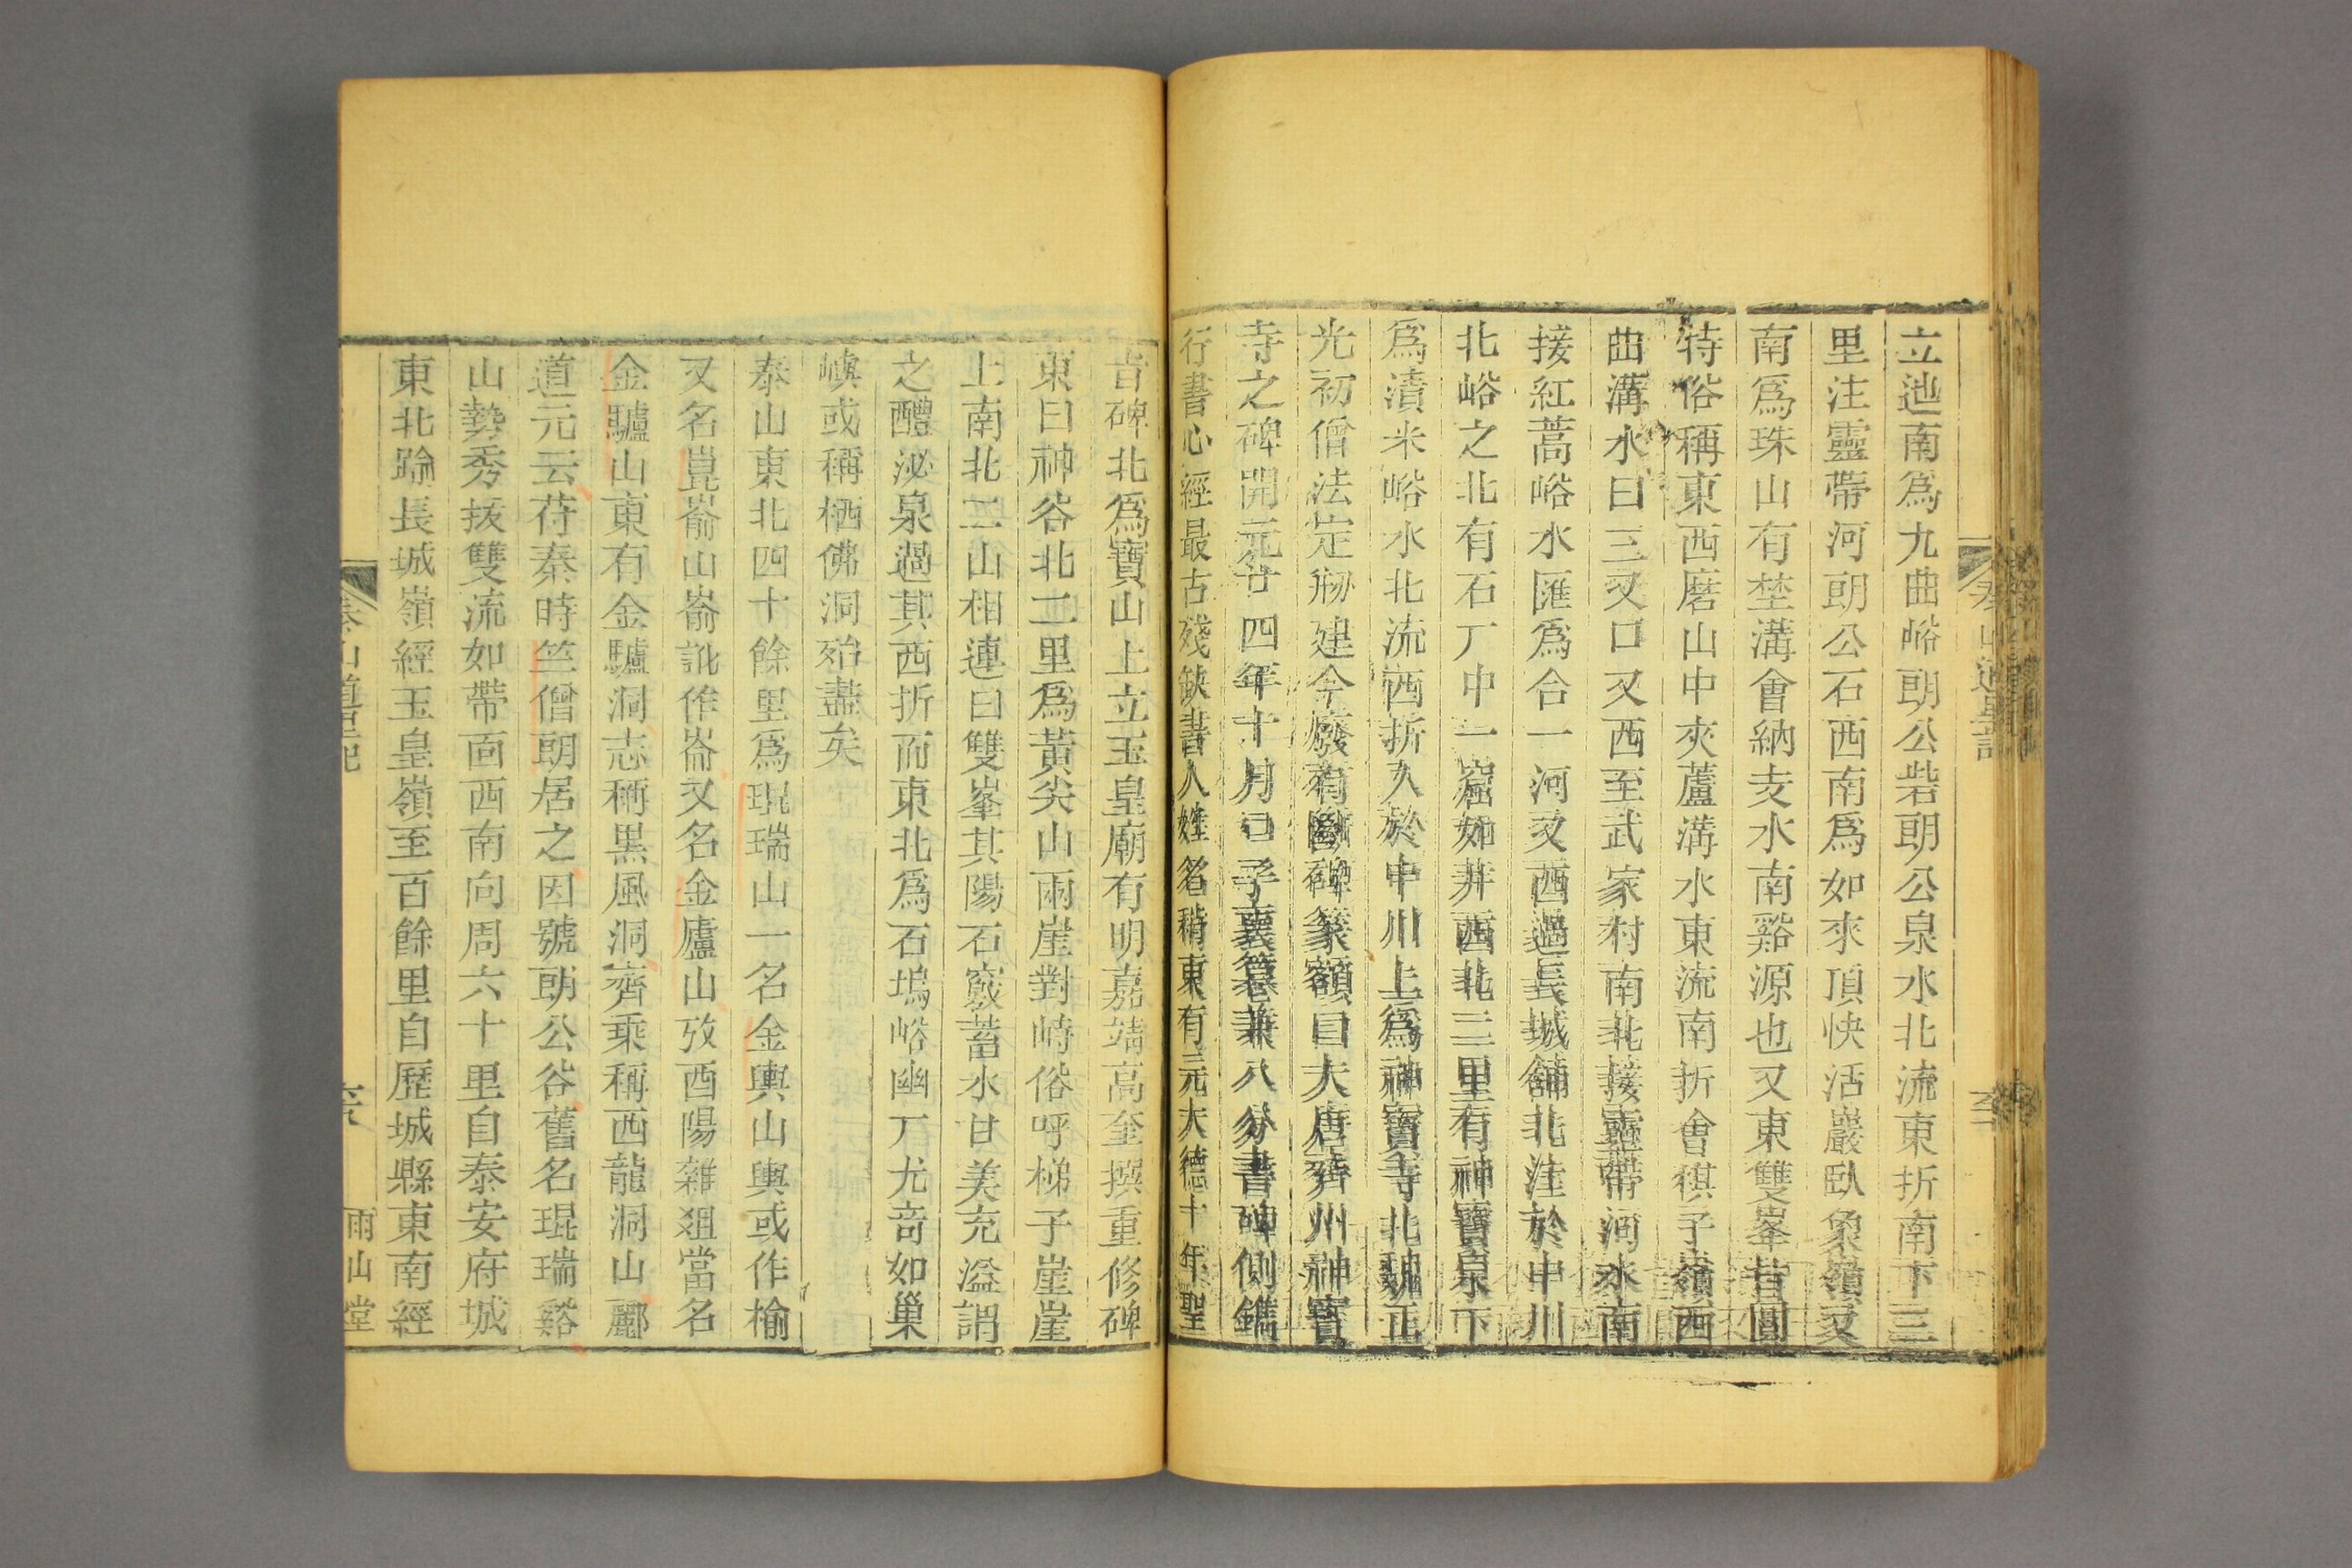 立迤南爲九曲峪朗公砦朗公泉水北流東折南下三
里注靈帶河朗公石西南爲如來頂快活巖臥象嶺又
南爲珠山有埜溝會納支水南谿源也又東雙峯昔圓
特俗稱東西磨山中夾蘆溝水東流南折會棋子嶺西
曲溝水曰三叉口又西至武家村南北接靈帶河水南
接紅蒿峪水匯爲合一河又西過長城舖北注於中川
北峪之北有石厂中一窟如井西北三里有神寶泉下
爲漬米峪水北流西折入於中川上爲神寶寺北魏正
光初僧法定刱建今廢有斷碑篆額曰大唐齊州神寶
寺之碑開元廿四年十月口子裏篹兼八分書碑側鐫
行書心經最古殘缺書人姓名稍東有元大德十年聖
旨碑北爲寶山上立玉皇廟有明嘉靖高奎撰重修碑
東曰神谷北二里爲黃尖山兩崖對峙俗呼梯子崖崖
上南北二山相連曰雙峯其陽石竅蓄水甘美充溢謂
之醴泌泉過其西折而東北爲石塢峪幽厂尤奇如巢
嶼或稱栖佛洞殆盡矣
泰山東北四十餘里爲琨瑞山一名金輿山輿或作榆
又名崑崙山崙訛作崘又名金廬山攷酉陽雜俎當名
金驢山東有金驢洞志稱黑風洞齊乘稱西龍洞山酈
道元云苻秦時竺僧朗居之因號朗公谷舊名琨瑞谿
山勢秀拔雙流如帶面西南向周六十里自泰安府城
東北踰長城嶺經玉皇嶺至百餘里自歷城縣東南經
泰山道里記
雨山堂